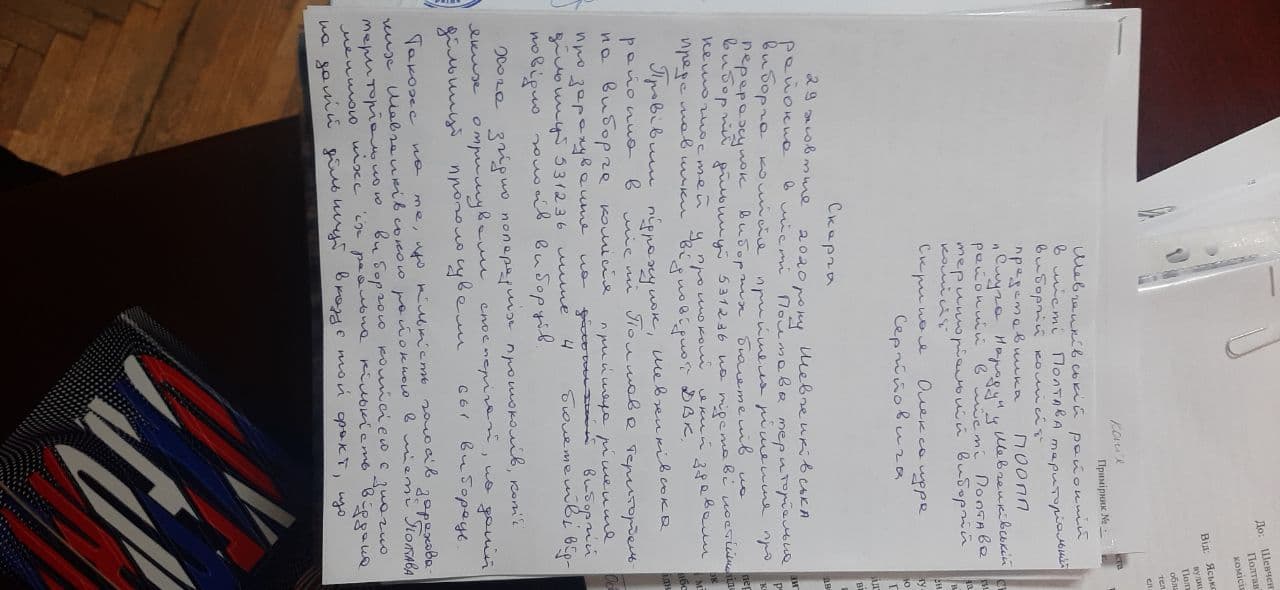 Шевченківській районній
в місті Полтава територіальній
виборчій комісії
представника ПООПП
"Слуга Народу" у Шевченківській
районній в місті Полтава
територіальній виборчій
комісії
Скрипая Олександра
Сергійовича
Скарга
29 жовтня 2020 року Шевченківська
районна в місті Полтава територіальна
виборча комісія прийняла рішення про
перерахунок виборчих бюлетенів на
виборчій дільниці 531236 на підставі
у протоколі який здавали
представники відповідної ДВК.
Провівши підрахунок, Шевченківська
районна в місті Полтава територіаль-
на виборча комісія прийняла рішення
про зарахування на виборчій
дільниці 531236 лише 4 бюлетені від-
повідно голосів виборців.
Хоча згідно попередніх протоколів, копії
яких отримували спостерігачі, на даній
дільниці проголосували 661 виборець.
Також на те, що кількість голосів зарахова-
них Шевченківською районною в місті Полтава
територіальною виборчою комісією є значно
меншою ніж їх реальна кількість віддана
на даній дільниці вказує той факт, що
Примірник №
копія
До: Шевчен
Полтав
комісі
Від: Ясько
вулиц
Полт
обл
тел
ел